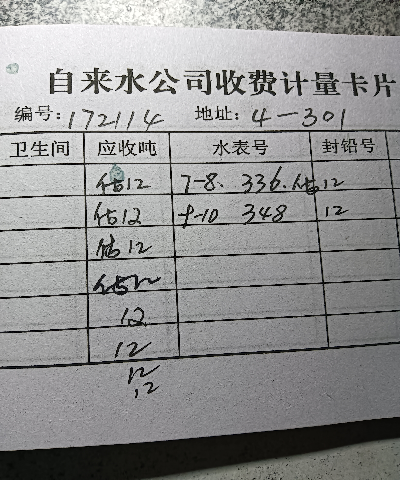 自来水公司收费计量卡片
编号: 172114 地址: 4-301
卫生间 应收吨 水表号 封铅号
估12 7-8. 336. 估12
估12 9-10 348 12
估12
估12
12
12
12
12